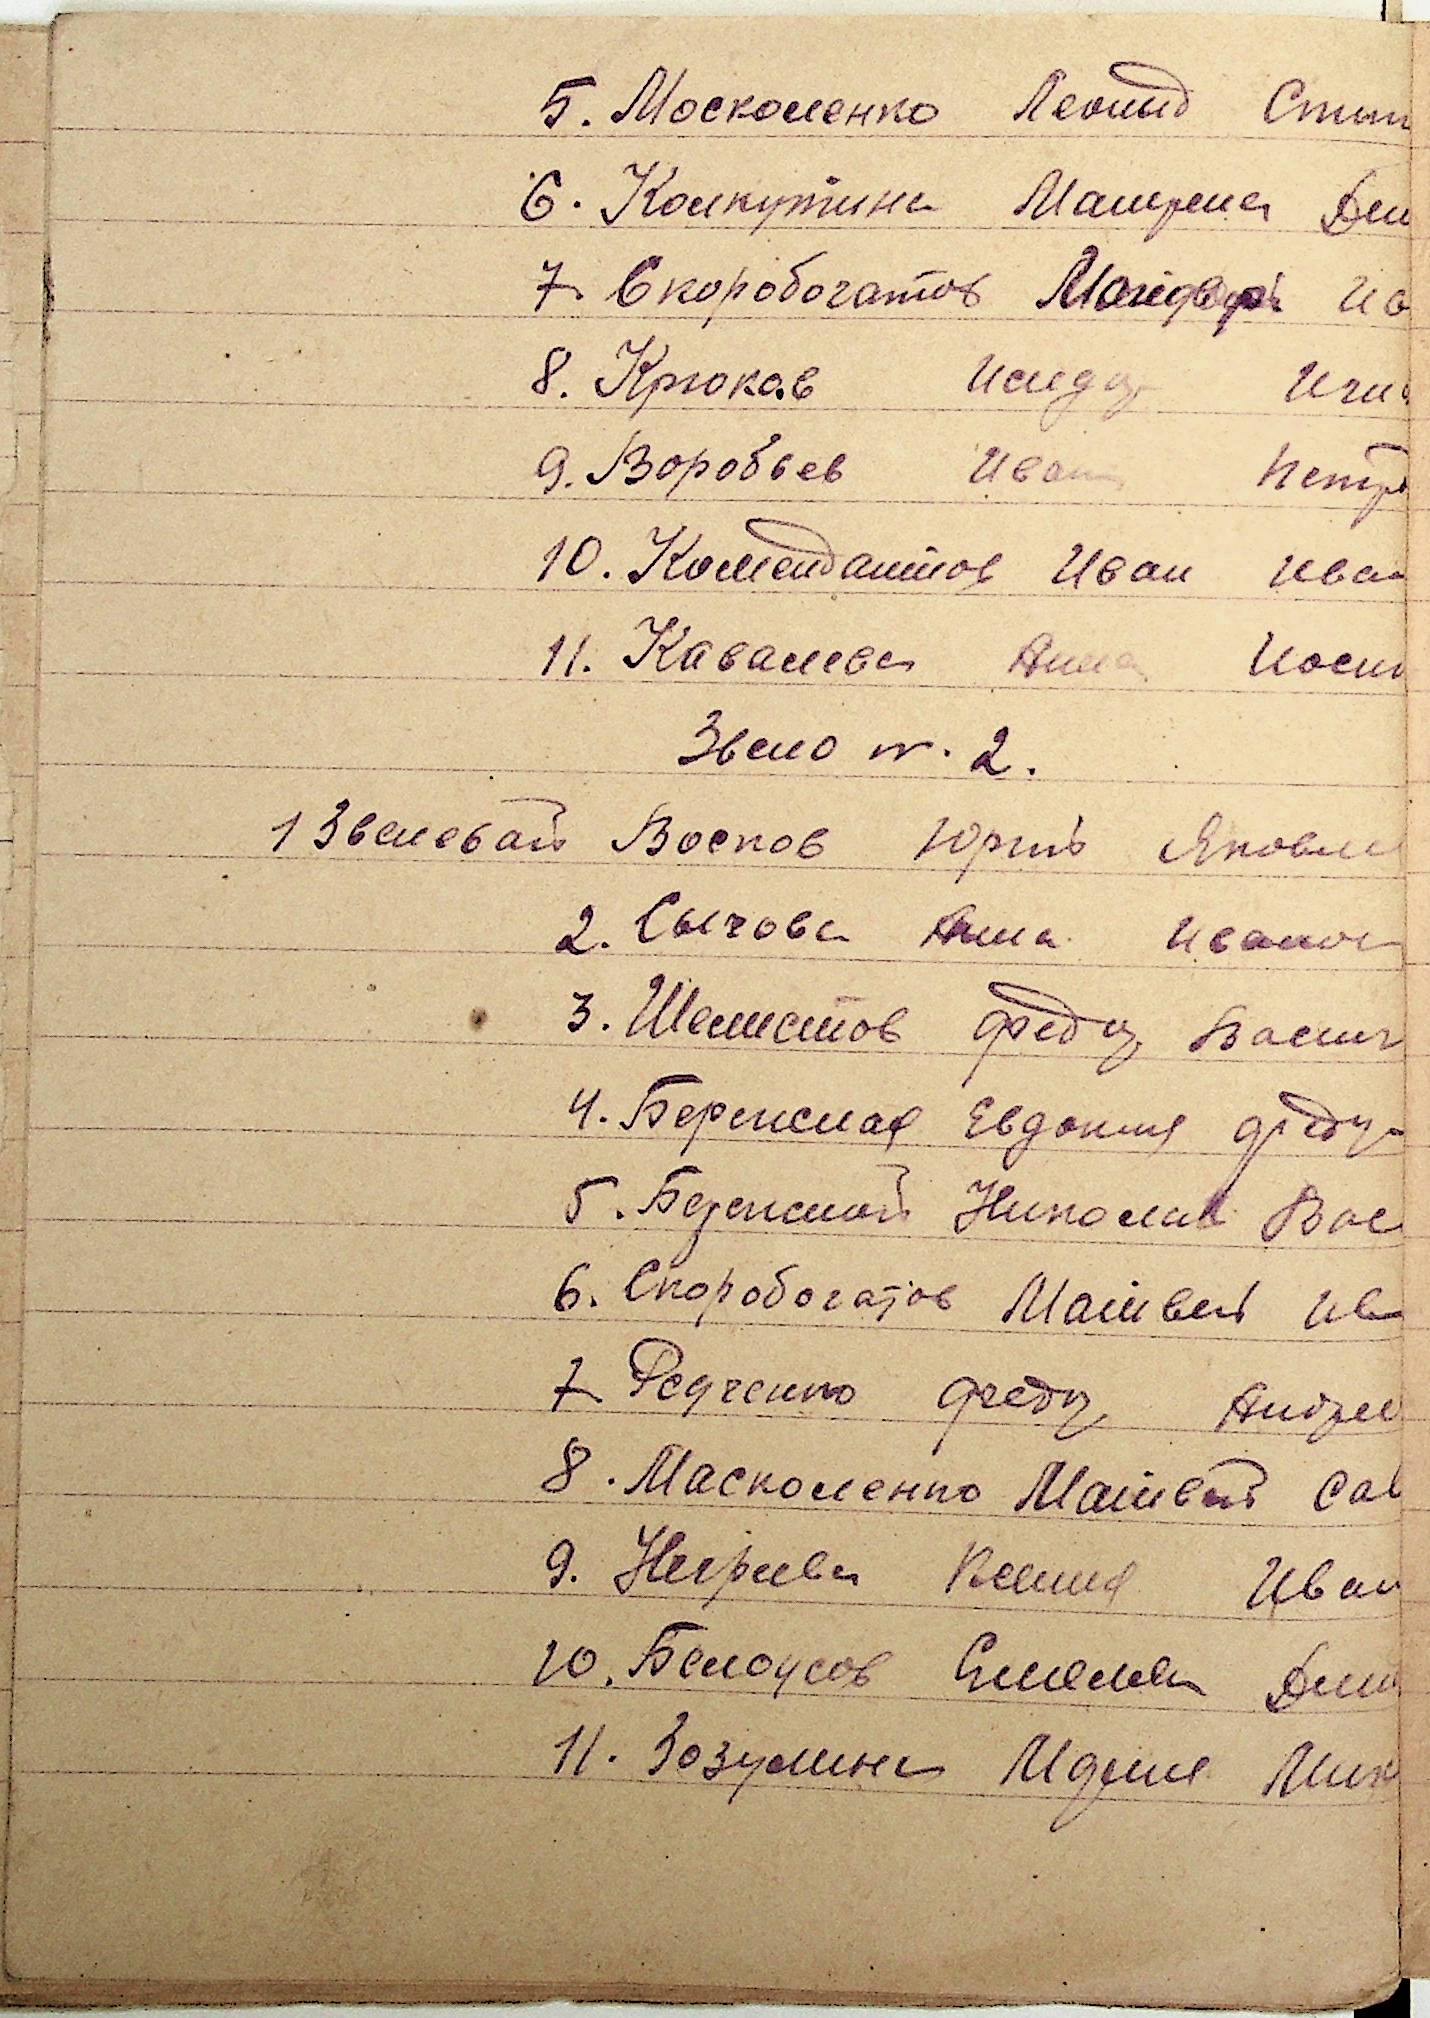 5. Москоленко Леонид Степ
6. Колкутина Матрена Дми
7. Скоробогатов Ив
8. Крюков Исидор
9. Воробьев Иван Петр
10. Комендантов Иван Иван
11. Кавалева Анна Иоси
Звено N. 2.
1 Звеневай Восков Юрий Яковле
2. Сычова Анна Иванов
3. Шелистов Федор Васил
4. Бережная Евдокия Федор
5. Бережной Николай Вас
6. Скоробогатов Матвей Ив
7. Редченко Федор Андре
8. Масколенко Матвей Сав
9. Негриева Ксения Иван
10. Белоусов Емельян Дми
11. Зозулина Мария Мих